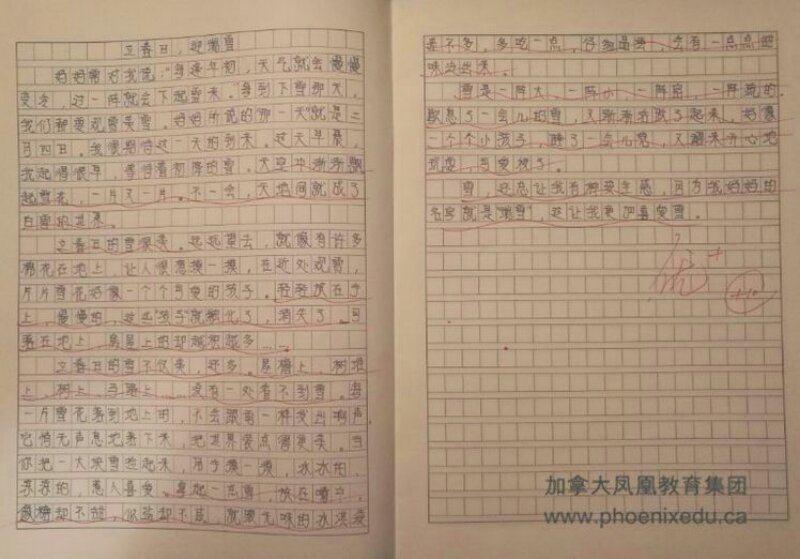 立春日，迎瑞雪
妈妈常对我说：“每逢年初，天气就会慢慢
变冷，过一阵就会下起雪来，等到下雪那天，
我们都要观雪赏雪。妈妈所说的“那一天”就是二
月四日。我很期待这一天的到来。这天早晨，
我起得很早，等待着初降的雪。天空中渐渐飘
起雪花，一片又一片。不一会，天地间就成了
白雪的世界。
立春日的雪很柔。远远望去，就像有许多
棉花在地上，让人很想摸一摸，在近处观看，
片片雪花好像一个个可爱的孩子。轻轻放在手
上，慢慢的，这些“孩子”就融化了，消失了。可
落在地上、房屋上的却越积越多……
立春日的雪不仅柔，还多。房檐上，树堆
上，树上，马路上……没有一处看不到雪。每
一片雪花落到地上时，不会跟雨一样发出响声，
它悄无声息地落下来，把世界装点得更美。当
你把一大块雪捡起来，用手摸一摸，冰冰的、
凉凉的，惹人喜爱。拿起一点雪，放在嘴中，
说甜却不甜，你说却不咸，就跟无味的冰淇淋
差不多，多吃一点，仔细品尝，会有一点点甜
味迸出来。
雪是一阵大、一阵小、一阵密、一阵疏的。
歇息了一会儿的雪，又渐渐活跃了起来，好像
一个个小孩子，睡了一会儿觉，又醒来开心地
玩耍，可爱极了。
雪，还总让我有种安全感，因为我妈妈的
名字就是“瑞雪”，这让我更把喜爱雪。
优+
+10
加拿大凤凰教育集团
www.phoenixedu.ca